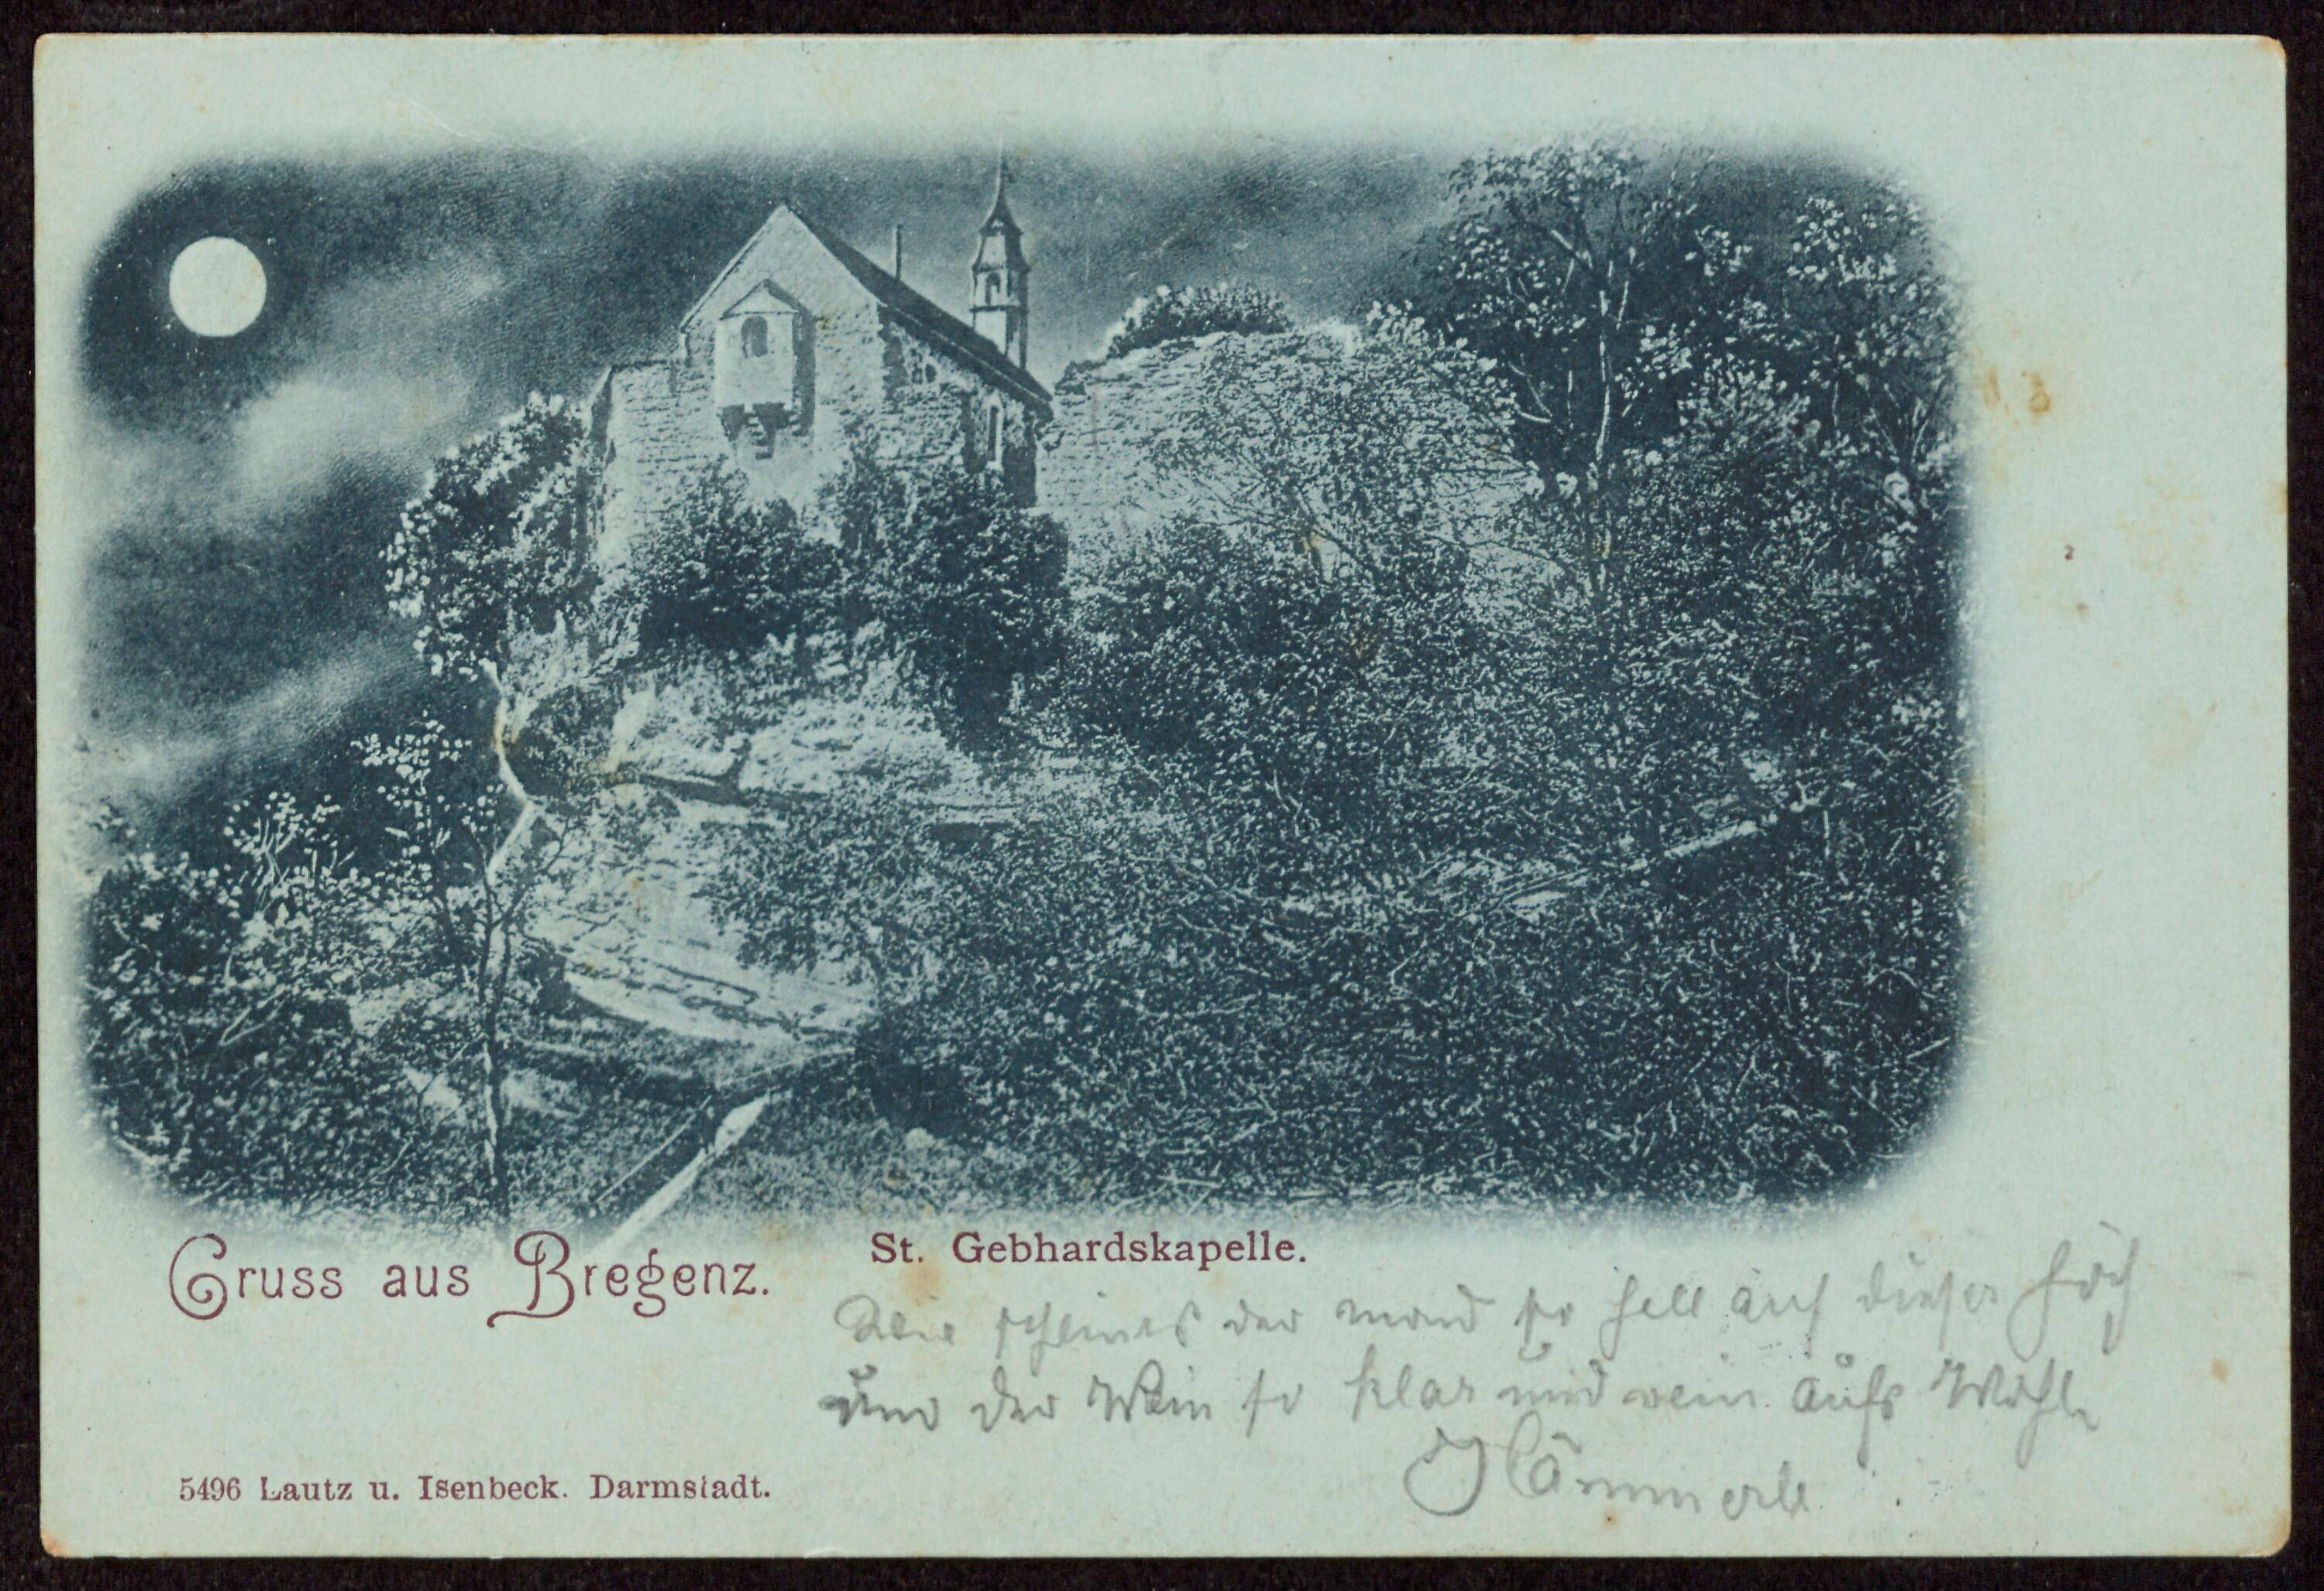 Gruss aus Bregenz.
St. Gebhardskapelle.
Wie scheint der mond so hell auf dieser Höh
und der Wein so klar und rein aufs Wohle
Hämmerle
5496 Lautz u. Isenbeck. Darmstadt.